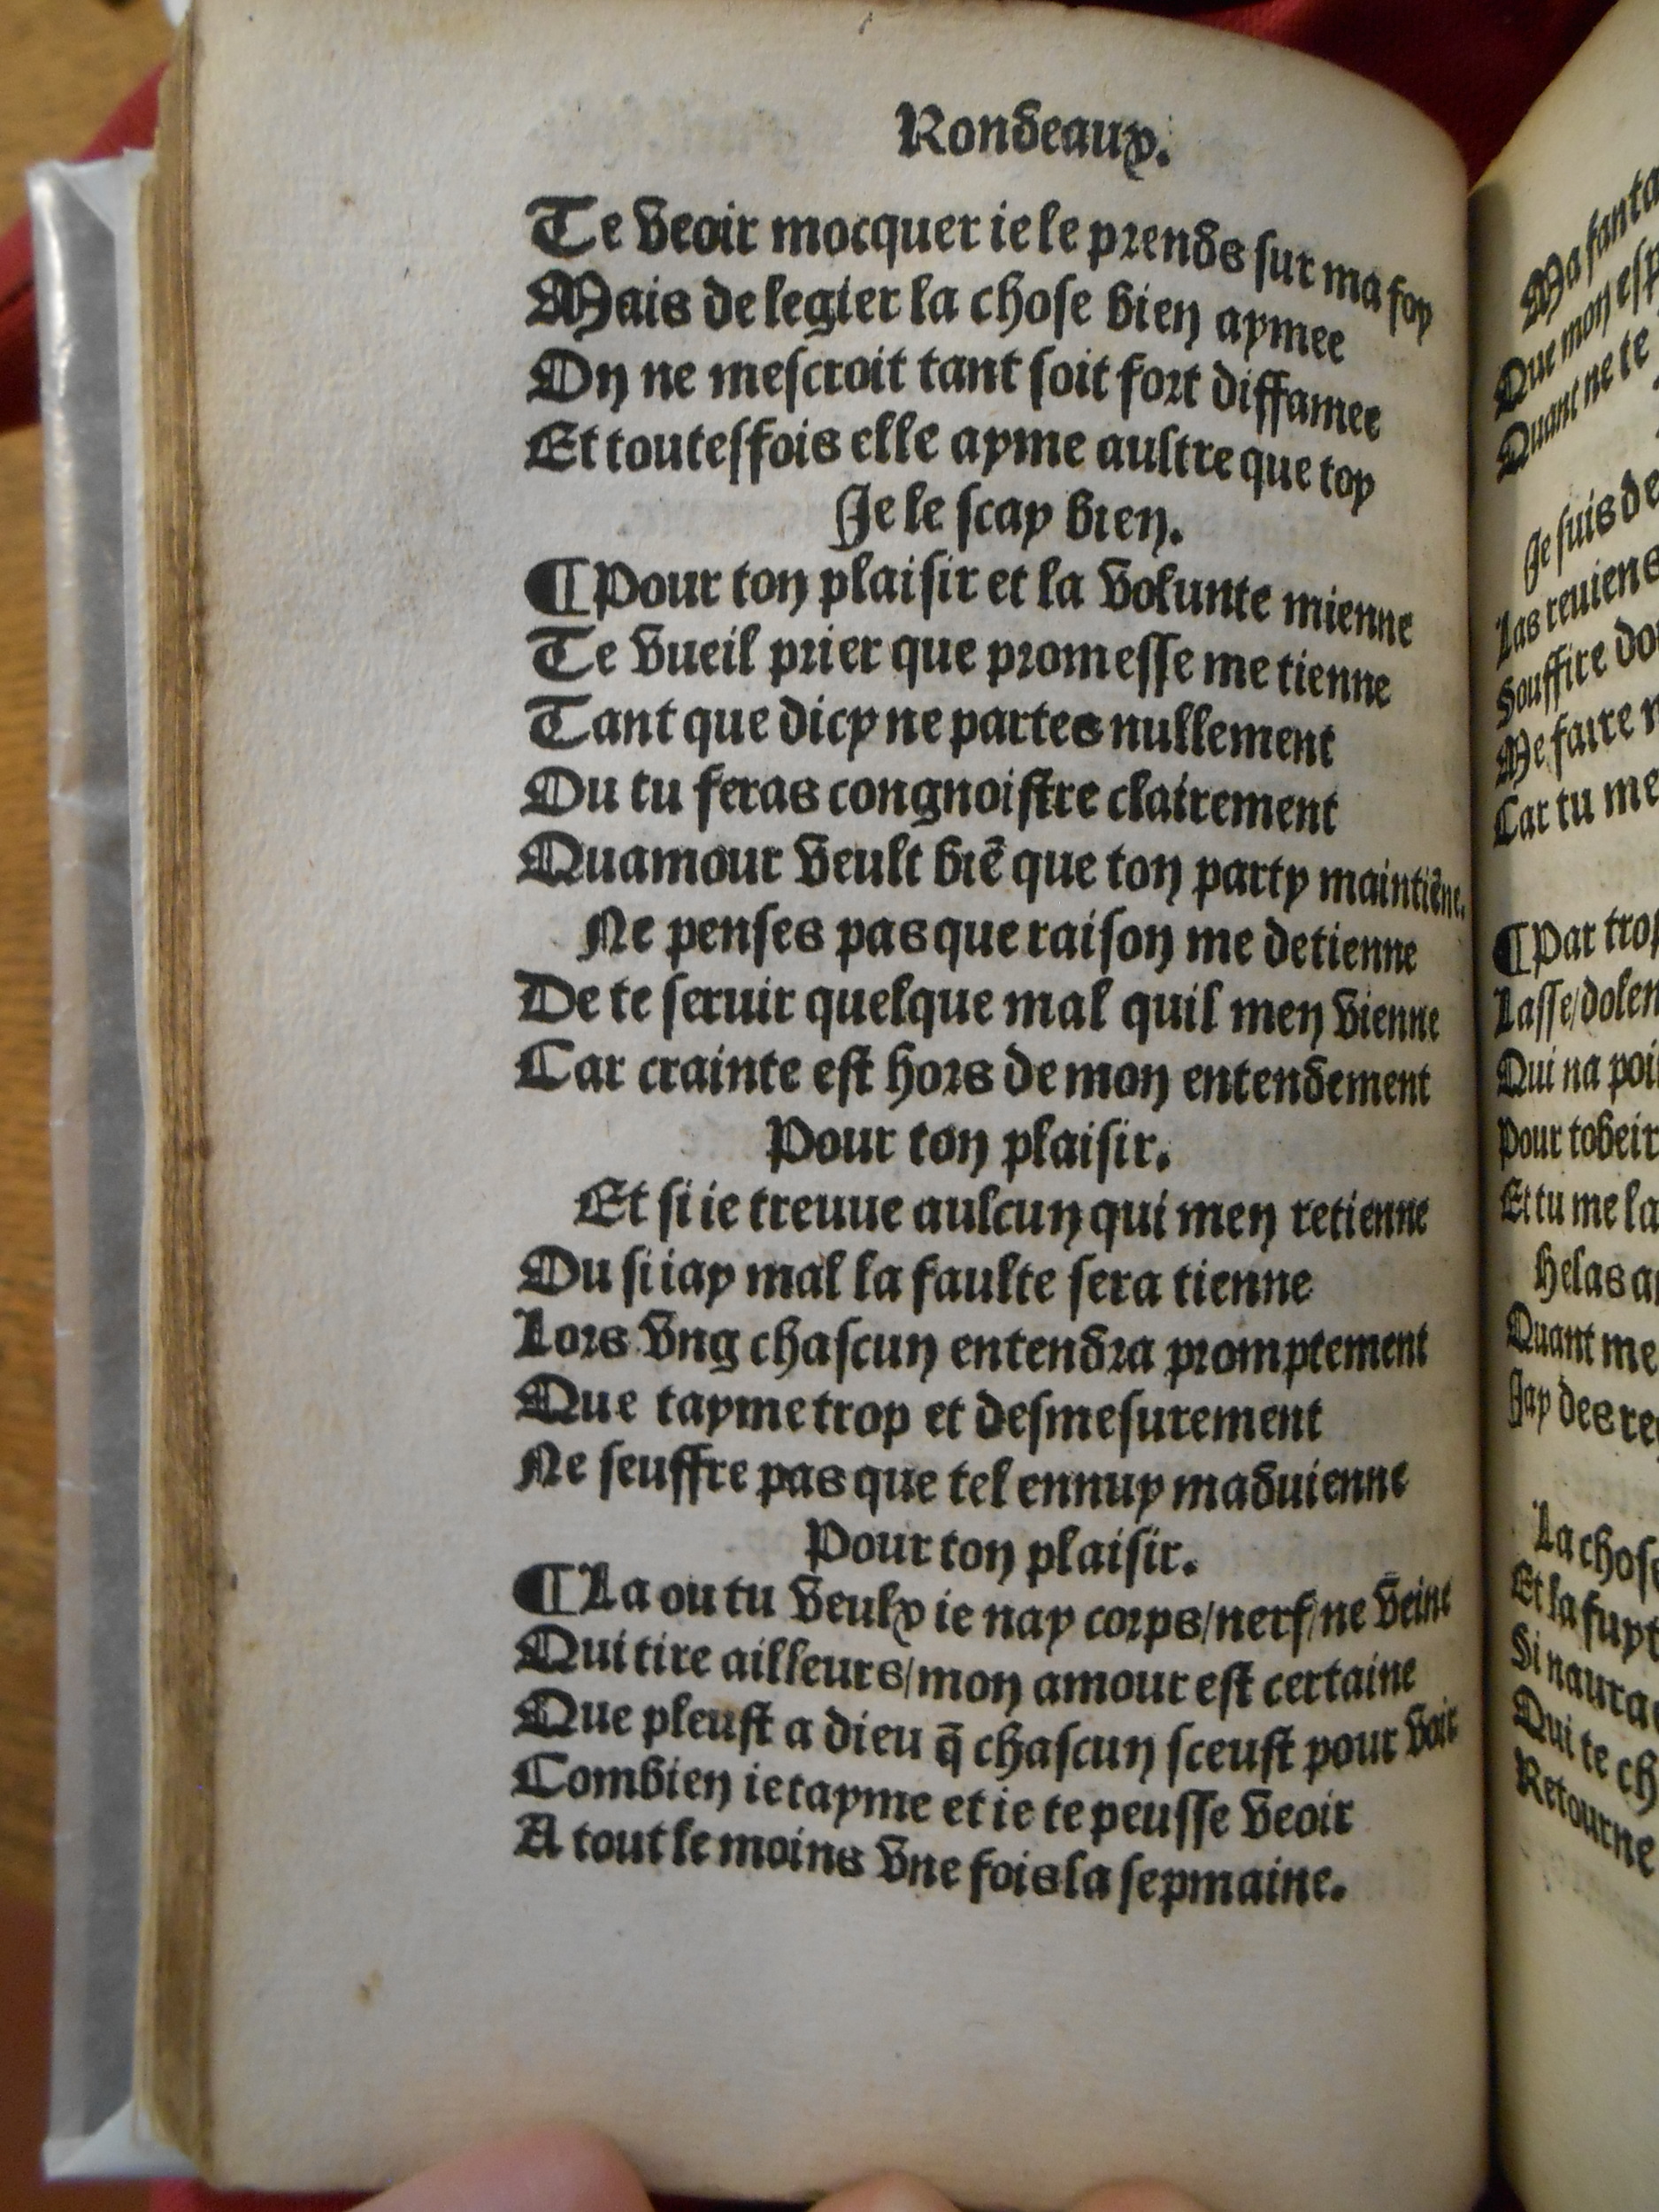 Rondeaux.
Te veoir mocquer ie le prends sur ma foy
Mais de legier la chose bien aymee
On ne mescroit tant soit fort diffamee
Et toutesfois elle ayme aultre que toy
Je le scay bien.
¶Pour ton plaisir et la volunte mienne
Te vueil prier que promesse me tienne
Tant que dicy ne partes nullement
Ou tu feras congnoistre clairement
Quamour veult biẽ que ton party maintiẽne.
Ne penses pas que raison me detienne
De te seruir quelque mal quil men vienne
Car crainte est hors de mon entendement
Pour ton plaisir.
Et si ie treuue aulcun qui men retienne
Ou si iay mal la faulte sera tienne
Lors vng chascun entendra promptement
Que tayme trop et desmesurement
Ne seuffre pas que tel ennuy maduienne
Pour ton plaisir.
¶La ou tu veulx ie nay corps/nerf/ne veine
Qui tire ailleurs/mon amour est certaine
Que pleust a dieu q̃ chascun sceust pour voir
Combien ie tayme et ie te peusse veoir
A tout le moins vne fois la sepmaine.
Que mon
Quant ne te
Je suis de
Las reuiens
Souffire
Me faire
Car tu me
¶Par
Lasse/
Qui na
Pour tobeir
Et tu me
Helas
Quant me
Jay des
La
Et la
Si
Qui te
Retourne